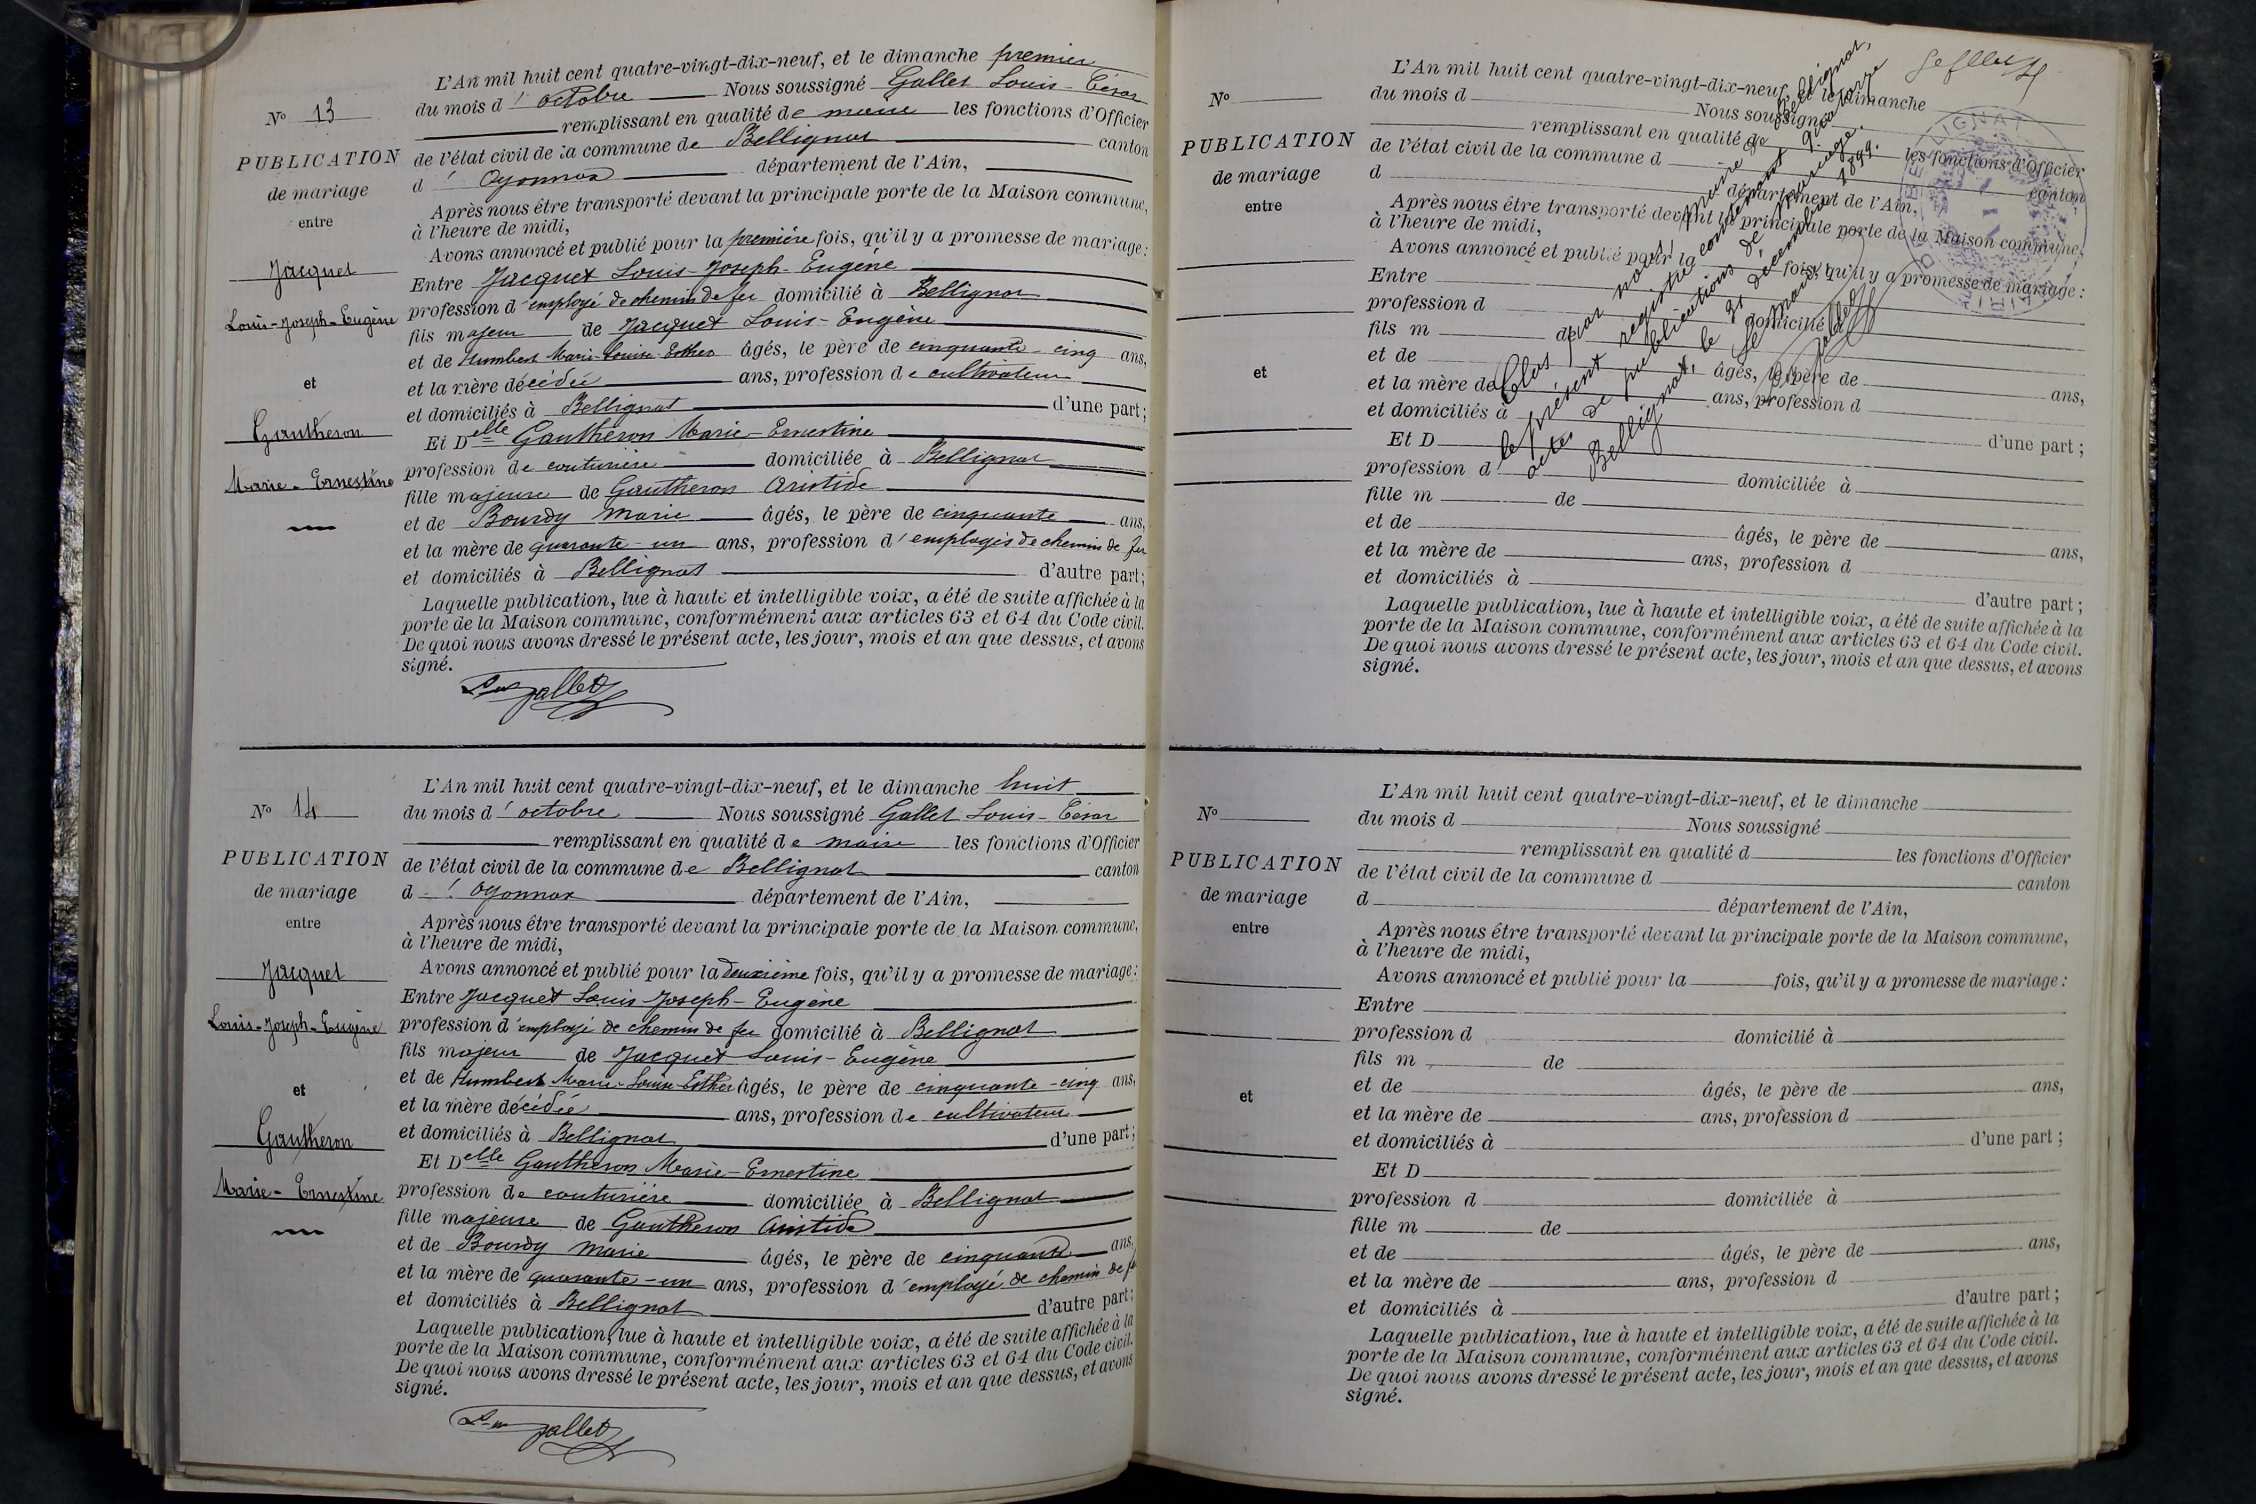 N° 13
PUBLICATION
de mariage
entre
Jacquet
Louis-Joseph-Eugène
et
Gautheron
Marie-Ernestine
L'An mil huit cent quatre-vingt-dix-neuf, et le dimanche premier
du mois d'octobre Nous soussigné Gallet Louis-César
remplissant en qualité de maire les fonctions d'Officier
de l'état civil de la commune de Bellignat canton
d'Oyonnax département de l'Ain,
Après nous être transporté devant la principale porte de la Maison commune,
à l'heure de midi,
Avons annoncé et publié pour la première fois, qu'il y a promesse de mariage:
Entre Jacquet Louis-Joseph-Eugène
profession d'employé de chemin de fer domicilié à Bellignat
fils majeur de Jacquet Louis-Eugène
et de Humbert Marie-Louise-Esther âgés, le père de cinquante-cinq ans,
et la mère décédée ans, profession de cultivateur
et domiciliés à Bellignat d'une part;
Et Delle Gautheron Marie-Ernestine
profession de couturière domiciliée à Bellignat
fille majeure de Gautheron Aristide
et de Bourdy Marie âgés, le père de cinquante ans,
et la mère de quarante-un ans, profession d'employés de chemin de fer
et domiciliés à Bellignat d'autre part;
Laquelle publication, lue à haute et intelligible voix, a été de suite affichée à la
porte de la Maison commune, conformément aux articles 63 et 64 du Code civil.
De quoi nous avons dressé le présent acte, les jour, mois et an que dessus, et avons
signé.
Gallet
N° 14
PUBLICATION
de mariage
entre
Jacquet
Louis-Joseph-Eugène
et
Gautheron
Marie-Ernestine
L'An mil huit cent quatre-vingt-dix-neuf, et le dimanche huit
du mois d'octobre Nous soussigné Gallet Louis-César
remplissant en qualité de maire les fonctions d'Officier
de l'état civil de la commune de Bellignat canton
d'Oyonnax département de l'Ain,
Après nous être transporté devant la principale porte de la Maison commune,
à l'heure de midi,
Avons annoncé et publié pour la deuxième fois, qu'il y a promesse de mariage:
Entre Jacquet Louis-Joseph-Eugène
profession d'employé de chemin de fer domicilié à Bellignat
fils majeur de Jacquet Louis-Eugène
et de Humbert Marie-Louise-Esther âgés, le père de cinquante-cinq ans,
et la mère décédée ans, profession de cultivateur
et domiciliés à Bellignat d'une part;
Et Delle Gautheron Marie-Ernestine
profession de couturière domiciliée à Bellignat
fille majeure de Gautheron Aristide
et de Bourdy Marie âgés, le père de cinquante ans,
et la mère de quarante-un ans, profession d'employé de chemin de fer
et domiciliés à Bellignat d'autre part;
Laquelle publication, lue à haute et intelligible voix, a été de suite affichée à la
porte de la Maison commune, conformément aux articles 63 et 64 du Code civil.
De quoi nous avons dressé le présent acte, les jour, mois et an que dessus, et avons
signé.
Gallet
N°
PUBLICATION
de mariage
entre
et
L'An mil huit cent quatre-vingt-dix-neuf, et le dimanche
du mois d Nous soussigné
remplissant en qualité de les fonctions d'Officier
de l'état civil de la commune d canton
d département de l'Ain,
Après nous être transporté devant la principale porte de la Maison commune,
à l'heure de midi,
Avons annoncé et publié pour la fois, qu'il y a promesse de mariage:
Entre
profession d domicilié à
fils m de
et de âgés, le père de ans,
et la mère de ans, profession d
et domiciliés à d'une part;
Et D
profession d domiciliée à
fille m de
et de âgés, le père de ans,
et la mère de ans, profession d
et domiciliés à d'autre part;
Laquelle publication, lue à haute et intelligible voix, a été de suite affichée à la
porte de la Maison commune, conformément aux articles 63 et 64 du Code civil.
De quoi nous avons dressé le présent acte, les jour, mois et an que dessus, et avons
signé.
Clos par nous, maire de Bellignat,
le présent registre contenant quatorze
actes de publications de mariage.
Bellignat, le 31 décembre 1899.
Le Maire,
Gallet
BELLIGNAT
N°
PUBLICATION
de mariage
entre
et
L'An mil huit cent quatre-vingt-dix-neuf, et le dimanche
du mois d Nous soussigné
remplissant en qualité d les fonctions d'Officier
de l'état civil de la commune d canton
d département de l'Ain,
Après nous être transporté devant la principale porte de la Maison commune,
à l'heure de midi,
Avons annoncé et publié pour la fois, qu'il y a promesse de mariage:
Entre
profession d domicilié à
fils m de
et de âgés, le père de ans,
et la mère de ans, profession d
et domiciliés à d'une part;
Et D
profession d domiciliée à
fille m de
et de âgés, le père de ans,
et la mère de ans, profession d
et domiciliés à d'autre part;
Laquelle publication, lue à haute et intelligible voix, a été de suite affichée à la
porte de la Maison commune, conformément aux articles 63 et 64 du Code civil.
De quoi nous avons dressé le présent acte, les jour, mois et an que dessus, et avons
signé.